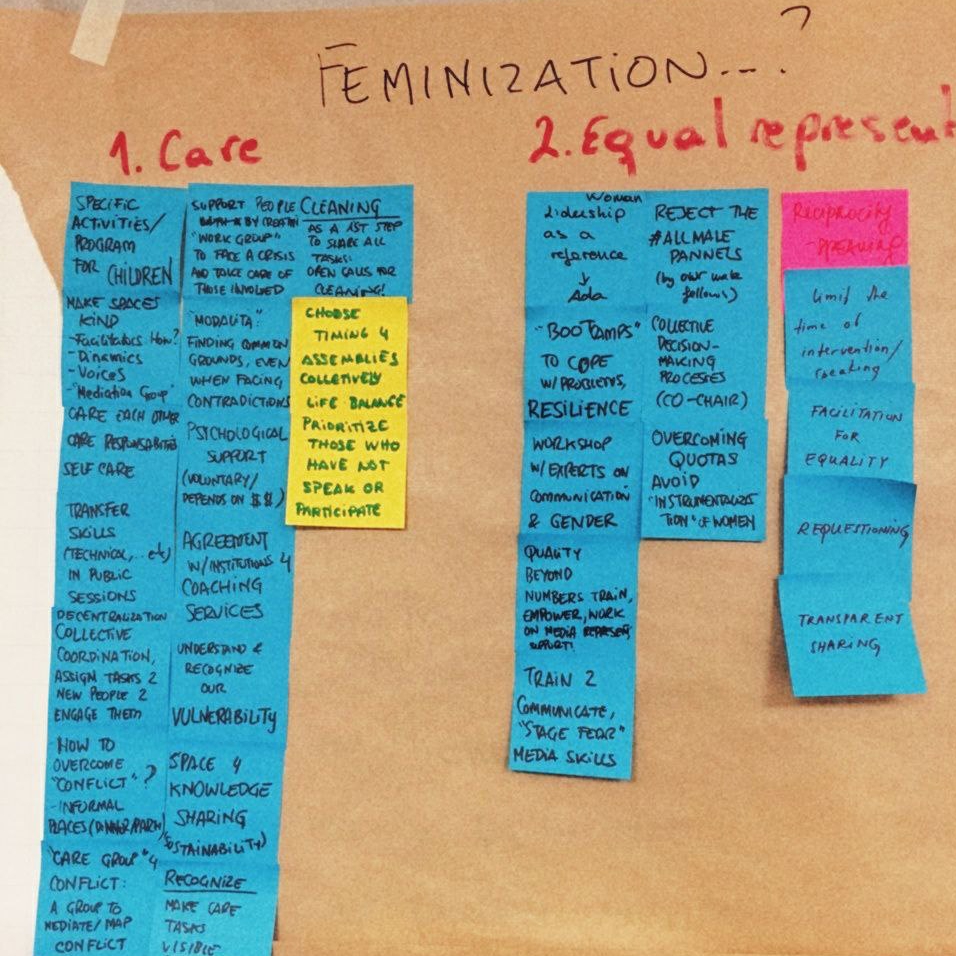 FEMINIZATION...?
1. Care
SPECIFIC
ACTIVITIES/
PROGRAM
FOR CHILDREN
MAKE SPACES
KIND
- Facilitators How?
- Dinamics
- Voices
- "Mediation Group"
CARE EACH OTHER
CARE RESPONSABILITIES
SELF CARE
TRANSFER
SKILLS
(TECHNICAL,... etc)
IN PUBLIC
SESSIONS
DECENTRALIZATION
COLLECTIVE
COORDINATION,
ASSIGN TASKS 2
NEW PEOPLE 2
ENGAGE THEM
- HOW TO
OVERCOME
"CONFLICT"?
- INFORMAL
PLACES (DINNER/PARTY)
"CARE GROUP" 4
CONFLICT:
A GROUP TO
MEDIATE/MAP
CONFLICT
SUPPORT PEOPLE
BY CREATIN
"WORK GROUP"
TO FACE A CRISIS
AND TAKE CARE OF
THOSE INVOLVED
"MODALITA":
FINDING COMMON
GROUNDS, EVEN
WHEN FACING
CONTRADICTIONS
PSYCHOLOGICAL
SUPPORT
(VOLUNTARY/
DEPENDS ON $$)
AGREEMENT
W/INSTITUTIONS 4
COACHING
SERVICES
UNDERSTAND &
RECOGNIZE
OUR
VULNERABILITY
SPACE 4
KNOWLEDGE
SHARING
(SUSTAINABILITY)
RECOGNIZE
MAKE CARE
TASKS
VISIBLE
CLEANING
AS A 1ST STEP
TO SHARE ALL
TASKS:
OPEN CALLS FOR
CLEANING!
CHOOSE
TIMING 4
ASSEMBLIES
COLLETIVELY
LIFE BALANCE
PRIORITIZE
THOSE WHO
HAVE NOT
SPEAK OR
PARTICIPATE
2. Equal represent
Woman
lidership
as a
reference
↓
Ada
"BOOTCAMPS"
TO COPE
W/PROBLEMS,
RESILIENCE
WORKSHOP
W/EXPERTS ON
COMMUNICATION
& GENDER
QUALITY
BEYOND
NUMBERS TRAIN,
EMPOWER, WORK
ON MEDIA REPRESENT,
SUPPORT!
TRAIN 2
COMMUNICATE,
"STAGE FEAR"
MEDIA SKILLS
REJECT THE
#ALLMALE
PANNELS
(by our male
fellows)
COLLECTIVE
DECISION-
MAKING
PROCESSES
(CO-CHAIR)
OVERCOMING
QUOTAS
AVOID
"INSTRUMENTALIZA
TION" OF WOMEN
Reciprocity
- SPEAKING
Limit the
time of
intervention/
speaking
FACILITATION
FOR
EQUALITY
REQUESTIONING
TRANSPARENT
SHARING